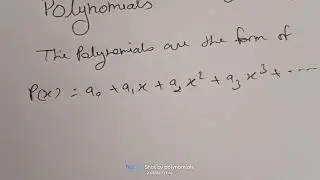 Polynomials
The Polynomials are the form of
P(x) = a₀ + a₁x + a₂x² + a₃x³ + ----
Shot by polynomials